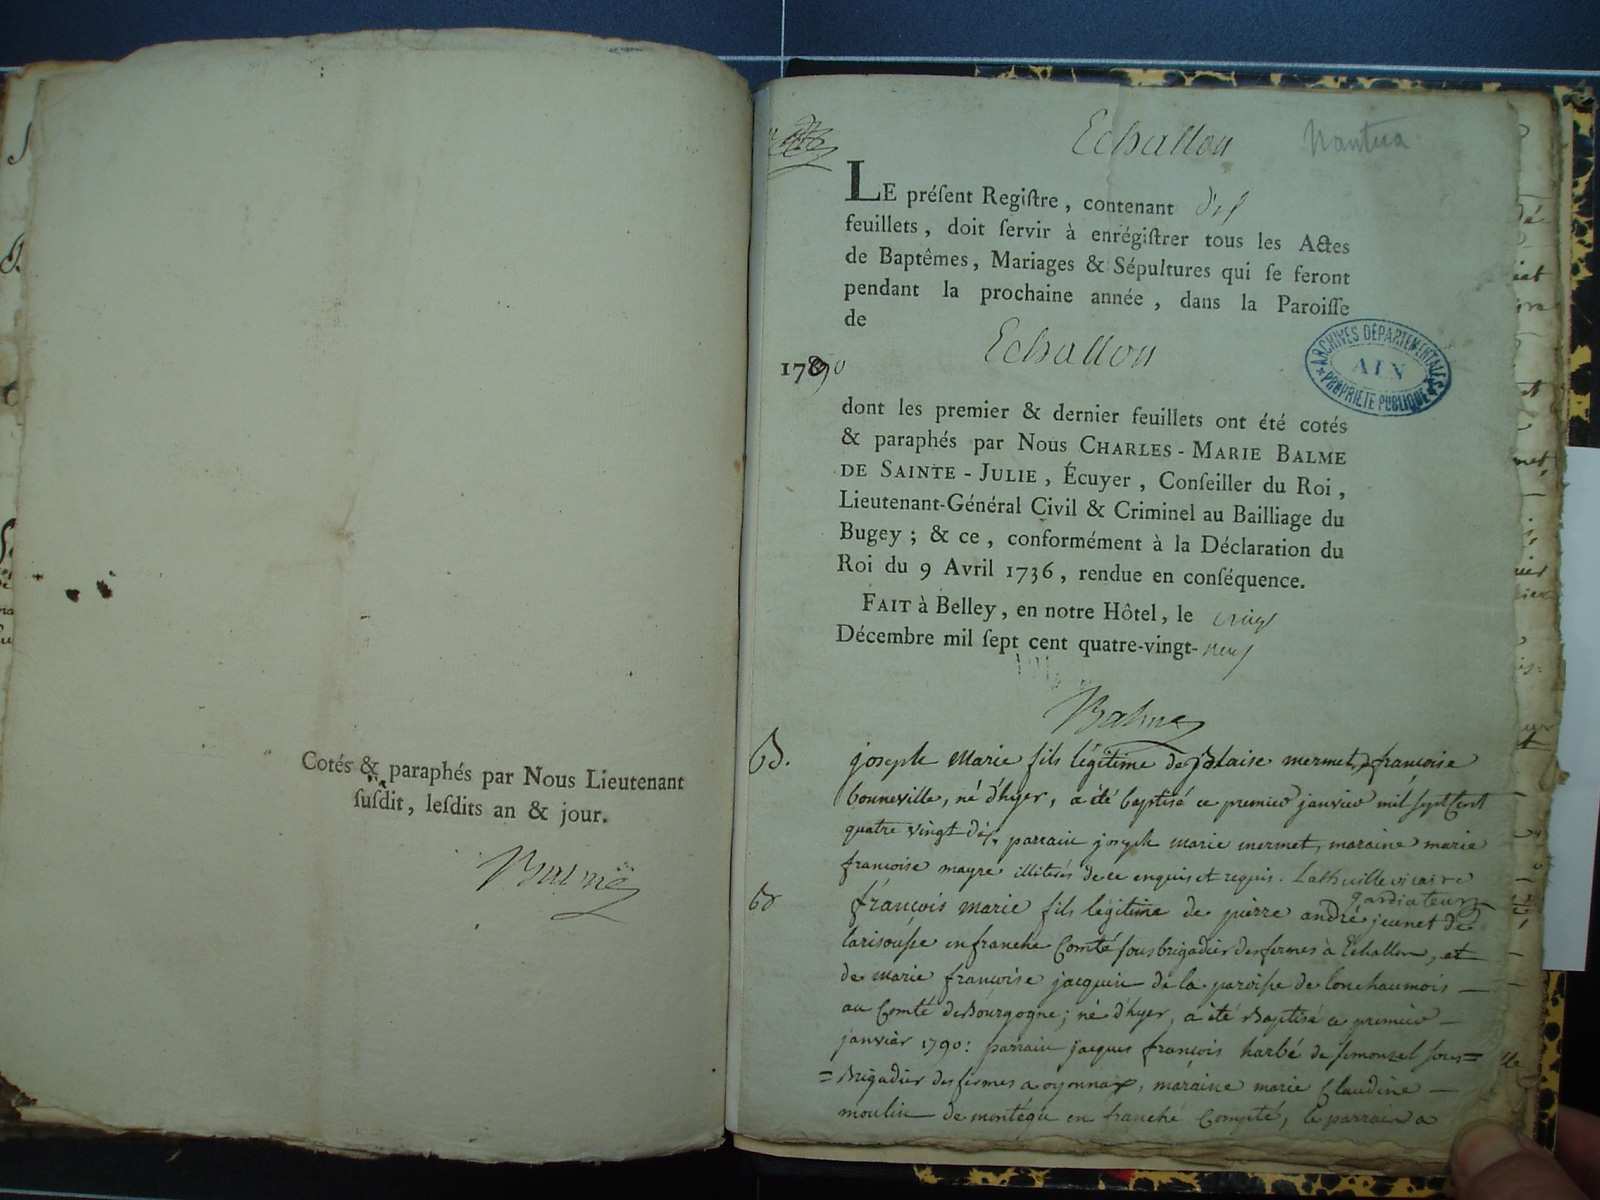 Cotés & paraphés par Nous Lieutenant
ſuſdit, leſdits an & jour.
Balme
Echallon
Nantua
LE préſent Regiſtre, contenant dix
feuillets, doit ſervir à enrégiſtrer tous les Actes
de Baptêmes, Mariages & Sépultures qui ſe feront
pendant la prochaine année, dans la Paroiſſe
de
Echallon
1790
ARCHIVES DÉPARTEMENTALES
AIN
PROPRIETE PUBLIQUE
dont les premier & dernier feuillets ont été cotés
& paraphés par Nous CHARLES-MARIE BALME
DE SAINTE-JULIE, Écuyer, Conſeiller du Roi,
Lieutenant-Général Civil & Criminel au Bailliage du
Bugey; & ce, conformément à la Déclaration du
Roi du 9 Avril 1736, rendue en conſéquence.
FAIT à Belley, en notre Hôtel, le
Décembre mil ſept cent quatre-vingt-neuf
Balme
B. joseph Marie fils légitime de Blaise mermet, & françoise
bonneville, né d'hyer, a été baptisé ce premier janvier mil sept Cent
quatre vingt dix, parrain joseph marie mermet, maraine marie
francoise mayre illiterés de ce enquis et requis. Lathuille vicaire
françois marie fils légitime de pierre andré jeunet de
en franche Comté sous brigadier des fermes à Echallon, et
de marie françoise jacquin de la paroisse de lonchaumois
au Comté de Bourgogne; né d'hyer, a été Baptisé ce premier
janvier 1790: parrain jacques françois harbé de simonzel sous=
=Brigadier des fermes a oyonnax, maraine marie Claudine
moulin de montégu en franche Compté, le parrain a